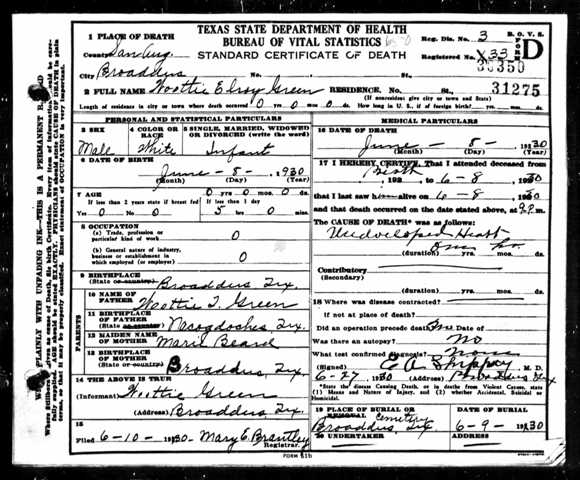 TEXAS STATE DEPARTMENT OF HEALTH
BUREAU OF VITAL STATISTICS
STANDARD CERTIFICATE OF DEATH
Reg. Dis. No. 3
B. O. V. S.
FORM D
Registered No. X33
31275
1 PLACE OF DEATH
County San Aug.
City Broaddus No. St.
2 FULL NAME Woottie Elroy Green RESIDENCE. No. St.
(If nonresident give city or town and State)
Length of residence in city or town where death occurred 0 yrs. 0 mos. 0 ds. How long in U. S., if of foreign birth? yrs. mos. ds.
PERSONAL AND STATISTICAL PARTICULARS
3 SEX Male
4 COLOR OR RACE White
5 SINGLE, MARRIED, WIDOWED or DIVORCED (write the word) Infant
6 DATE OF BIRTH
June - 8 - 1930
(Month) (Day) (Year)
7 AGE 0 yrs. 0 mos. 0 ds.
If less than 2 years state if breast fed
Yes 0 No 0
If less than 1 day
5 hrs 0 min.
8 OCCUPATION
(a) Trade, profession or particular kind of work 0
(b) General nature of industry, business or establishment in which employed (or employer) 0
9 BIRTHPLACE
(State or country) Broaddus, Tex.
PARENTS
10 NAME OF FATHER Woottie T. Green
11 BIRTHPLACE OF FATHER
(State or country) Nacogdoches, Tex.
12 MAIDEN NAME OF MOTHER Marie Beard
13 BIRTHPLACE OF MOTHER
(State or country) Broaddus, Tex.
14 THE ABOVE IS TRUE
(Informant) Woottie Green
(Address) Broaddus, Tex.
15
Filed 6-10-1930 Mary E. Brantley
Registrar.
MEDICAL PARTICULARS
16 DATE OF DEATH
June - 8 - 1930
(Month) (Day) (Year)
17 I HEREBY CERTIFY, That I attended deceased from
Birth, 192 to 6-8, 1930
that I last saw him alive on 6-8 1930
and that death occurred on the date stated above, at 9 P. m.
The CAUSE OF DEATH* was as follows:
Undeveloped Heart
(duration) yrs. mos. ds.
Contributory
(Secondary)
(duration) yrs. mos. ds.
18 Where was disease contracted?
If not at place of death?
Did an operation precede death? No Date of
Was there an autopsy? No
What test confirmed diagnosis? None
(Signed) M. D.
6-27, 1930 (Address) Broaddus Tex
*State the disease Causing Death, or in deaths from Violent Causes, state 1; Means and Nature of Injury, and (2) whether Accidental, Suicidal or Homicidal.
19 PLACE OF BURIAL OR REMOVAL
Cemetery
Broaddus, Tex
6-9-1930
20 UNDERTAKER ADDRESS